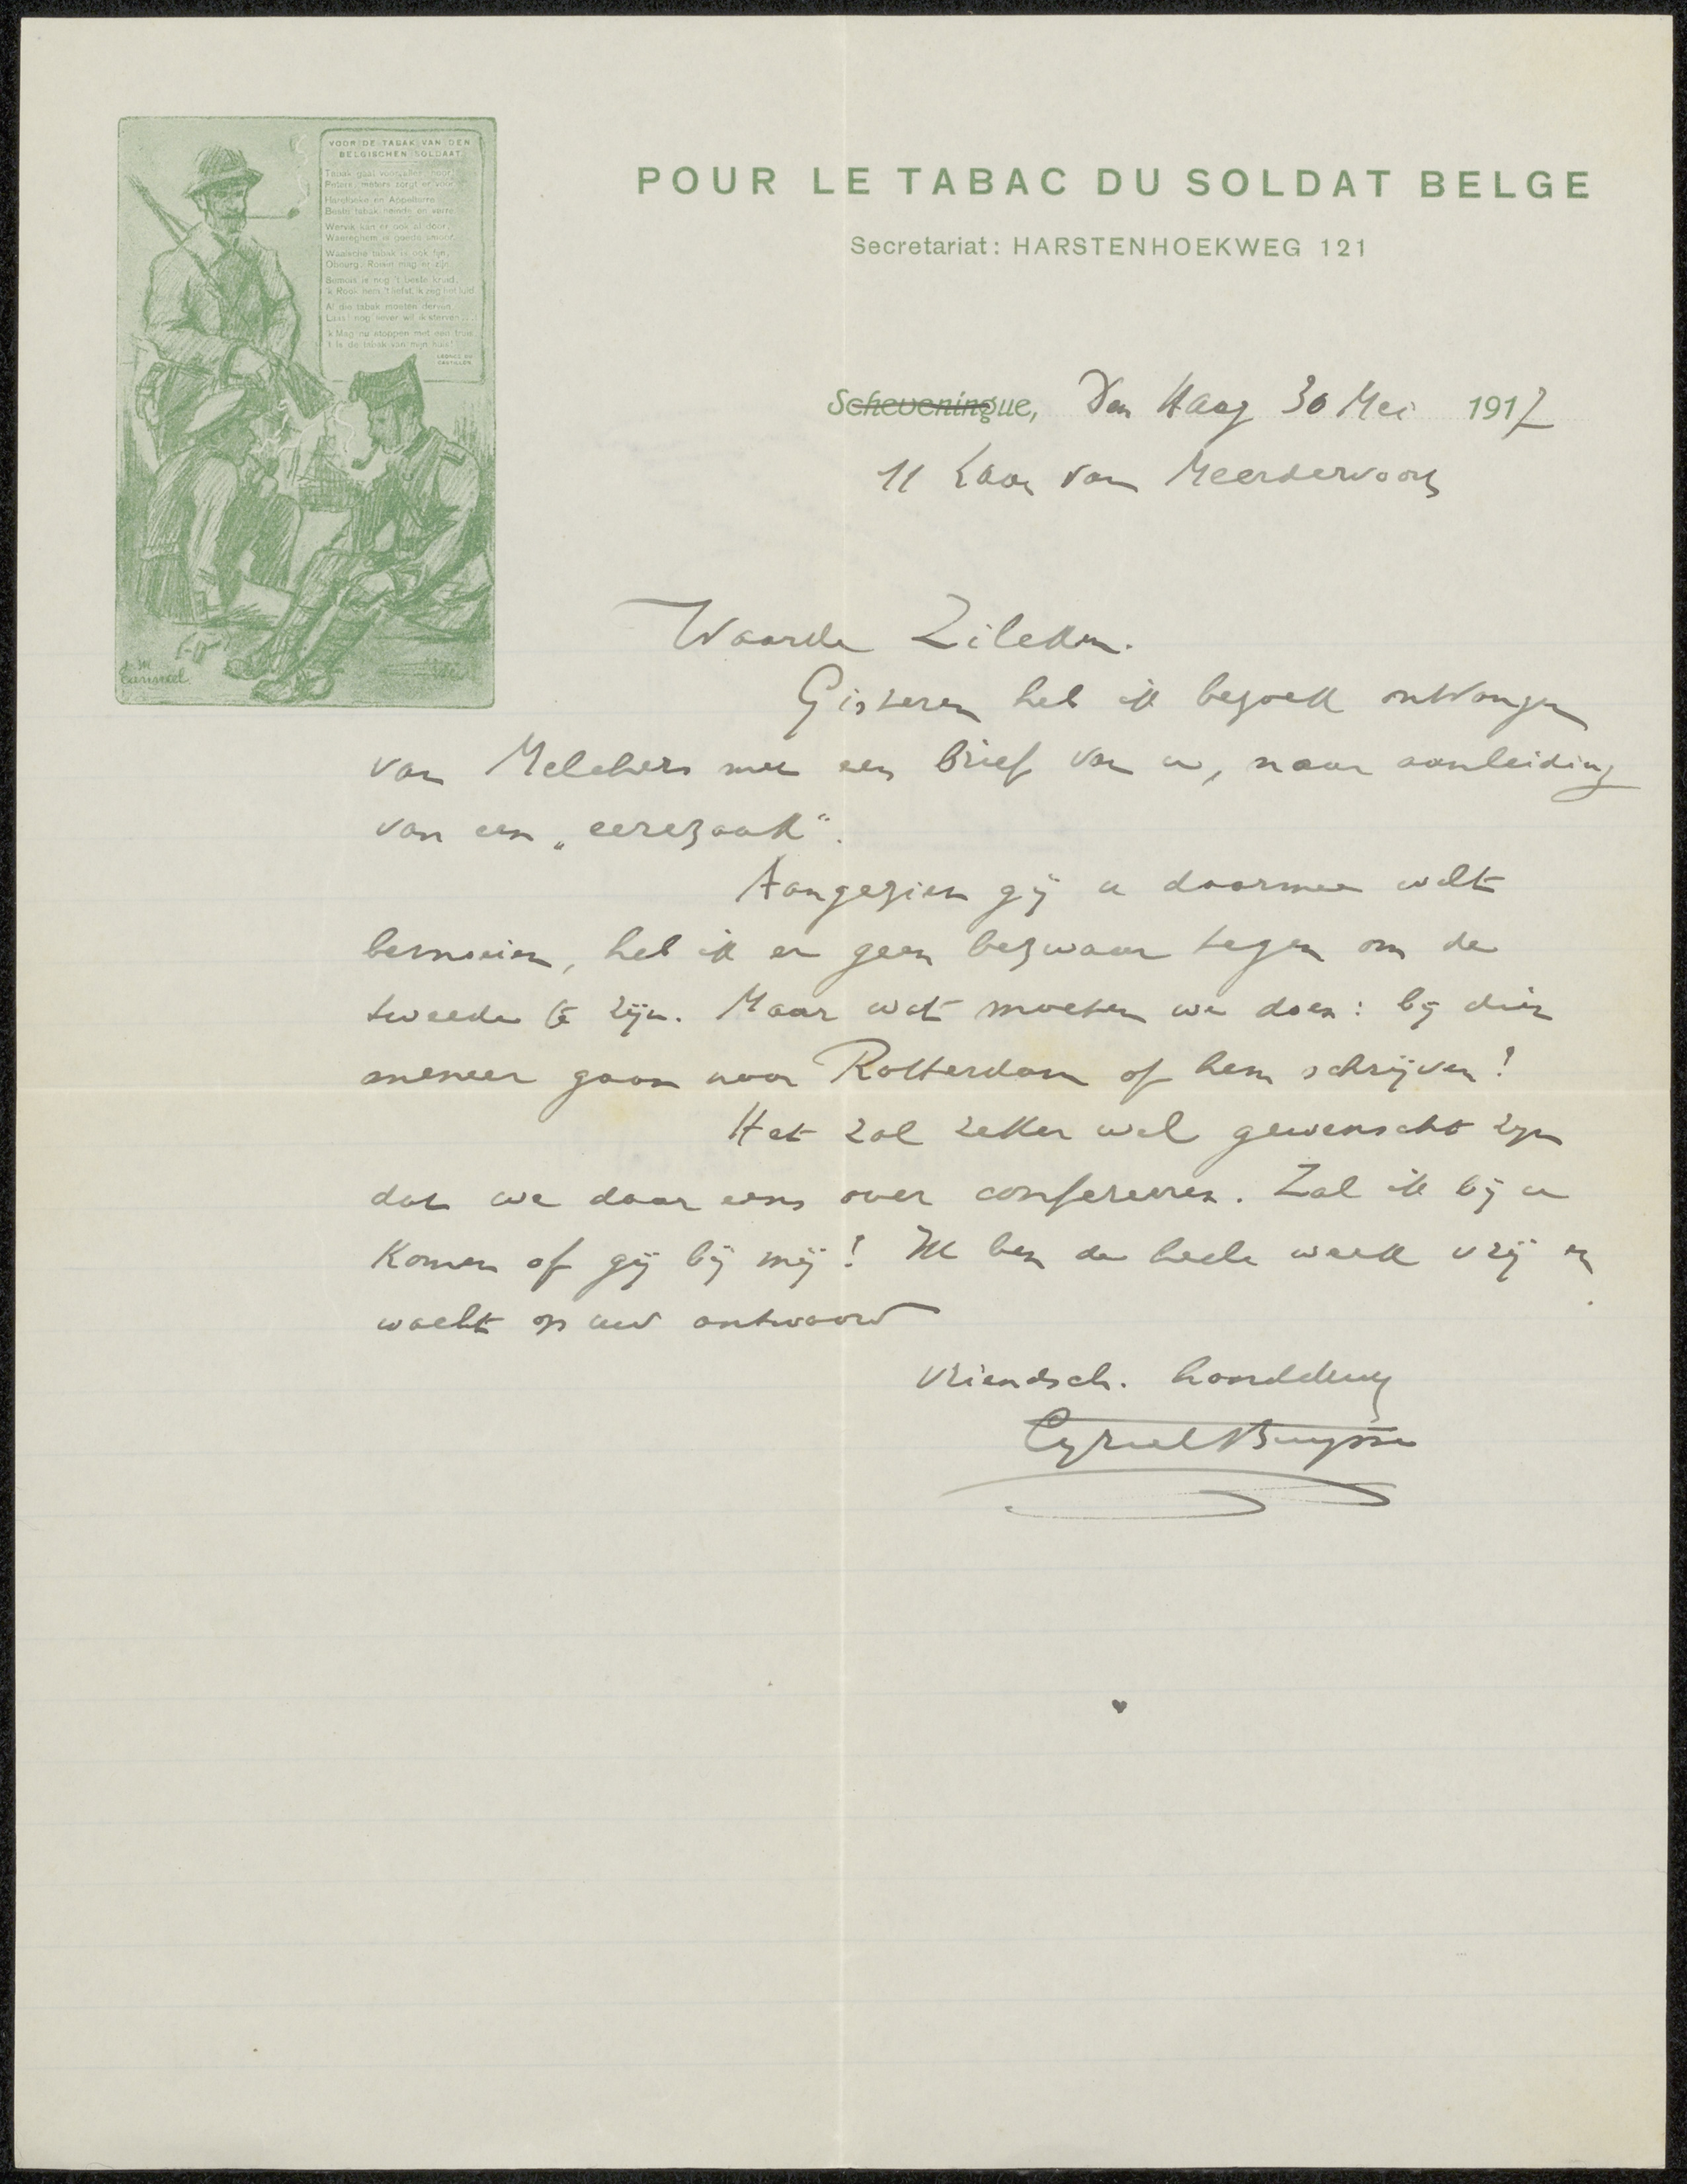 VOOR DE TABAK VAN DEN
BELGISCHEN SOLDAAT
Tabak gaat voor alles, hoor!
Peters, meters zorgt er voor
Harelbeke en Appelterre
Beste tabak heinde en verre
Wervik kan er ook al door,
Waereghem is goede smoor
Waalsche tabak is ook fijn,
Obourg, Roisin mag er zijn
Semois is nog 't beste kruid,
'k Rook hem 't liefst, ik zeg het luid
Al die tabak moeten derven
Laas! nog liever wil ik sterven ...!
'k Mag nu stoppen met een truis
't Is de tabak van mijn huis!
POUR LE TABAC DU SOLDAT BELGE
Secretariat: HARSTENHOEKWEG 121
Scheveningue, Den Haag 30 Mei 1917
11 Laan van Meerdervoort
Waarde Zilcken.
Gisteren heb ik bezoek ontvangen
van Melchers met een brief van u, naar aanleiding
van een „eerezaak".
Aangezien gij u daarmee wilt
bemoeien, heb ik er geen bezwaar tegen om de
tweede te zijn. Maar wat moeten we doen: bij dien
meneer gaan naar Rotterdam of hem schrijven?
Het zal zeker wel gewenscht zijn
dat we daar eens over confereeren. Zal ik bij u
komen of gij bij mij? Ik ben de heele week vrij en
wacht op uw antwoord
vriendsch. handdruk
Cyriel Buysse